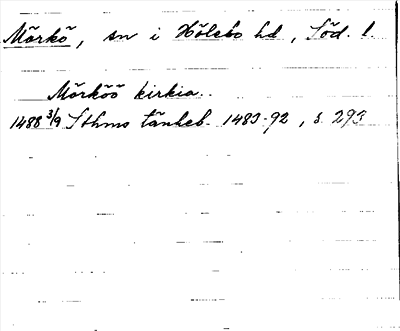 Mörkö, sn i Hölebo hd, Söd. l.
Mörköö kirkia.
1488 3/9 Sthms tänkeb 1483-92, s. 293